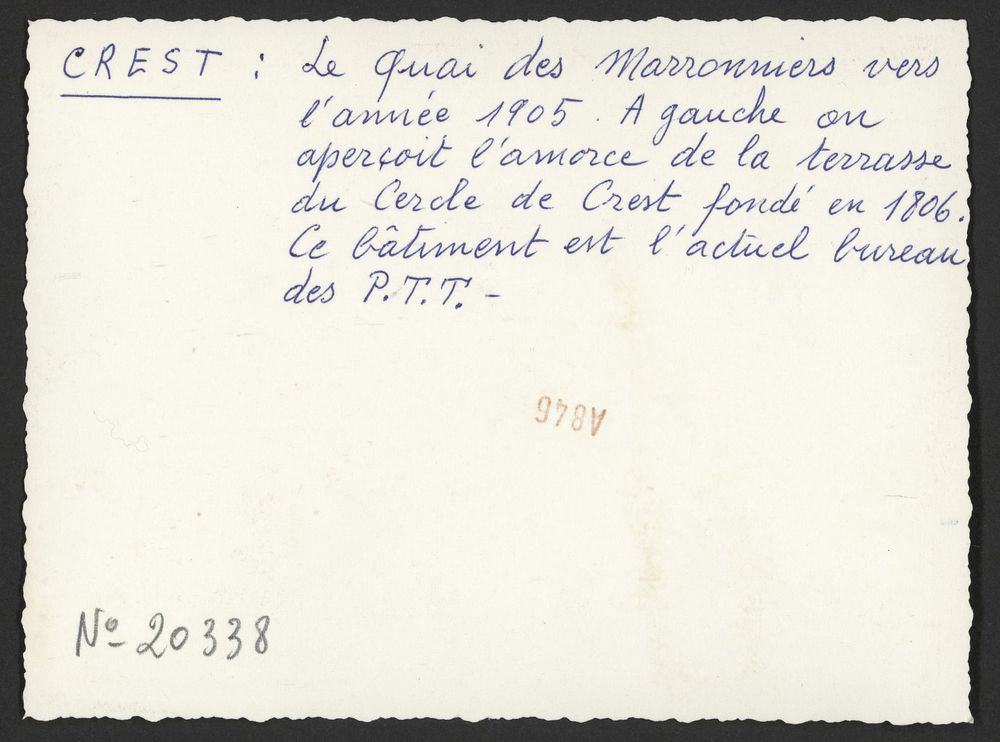 CREST : Le Quai des Marronniers vers
l'année 1905. A gauche on
aperçoit l'amorce de la terrasse
du Cercle de Crest fondé en 1806.
Ce bâtiment est l'actuel bureau
des P.T.T. -
A846
Nº 20338